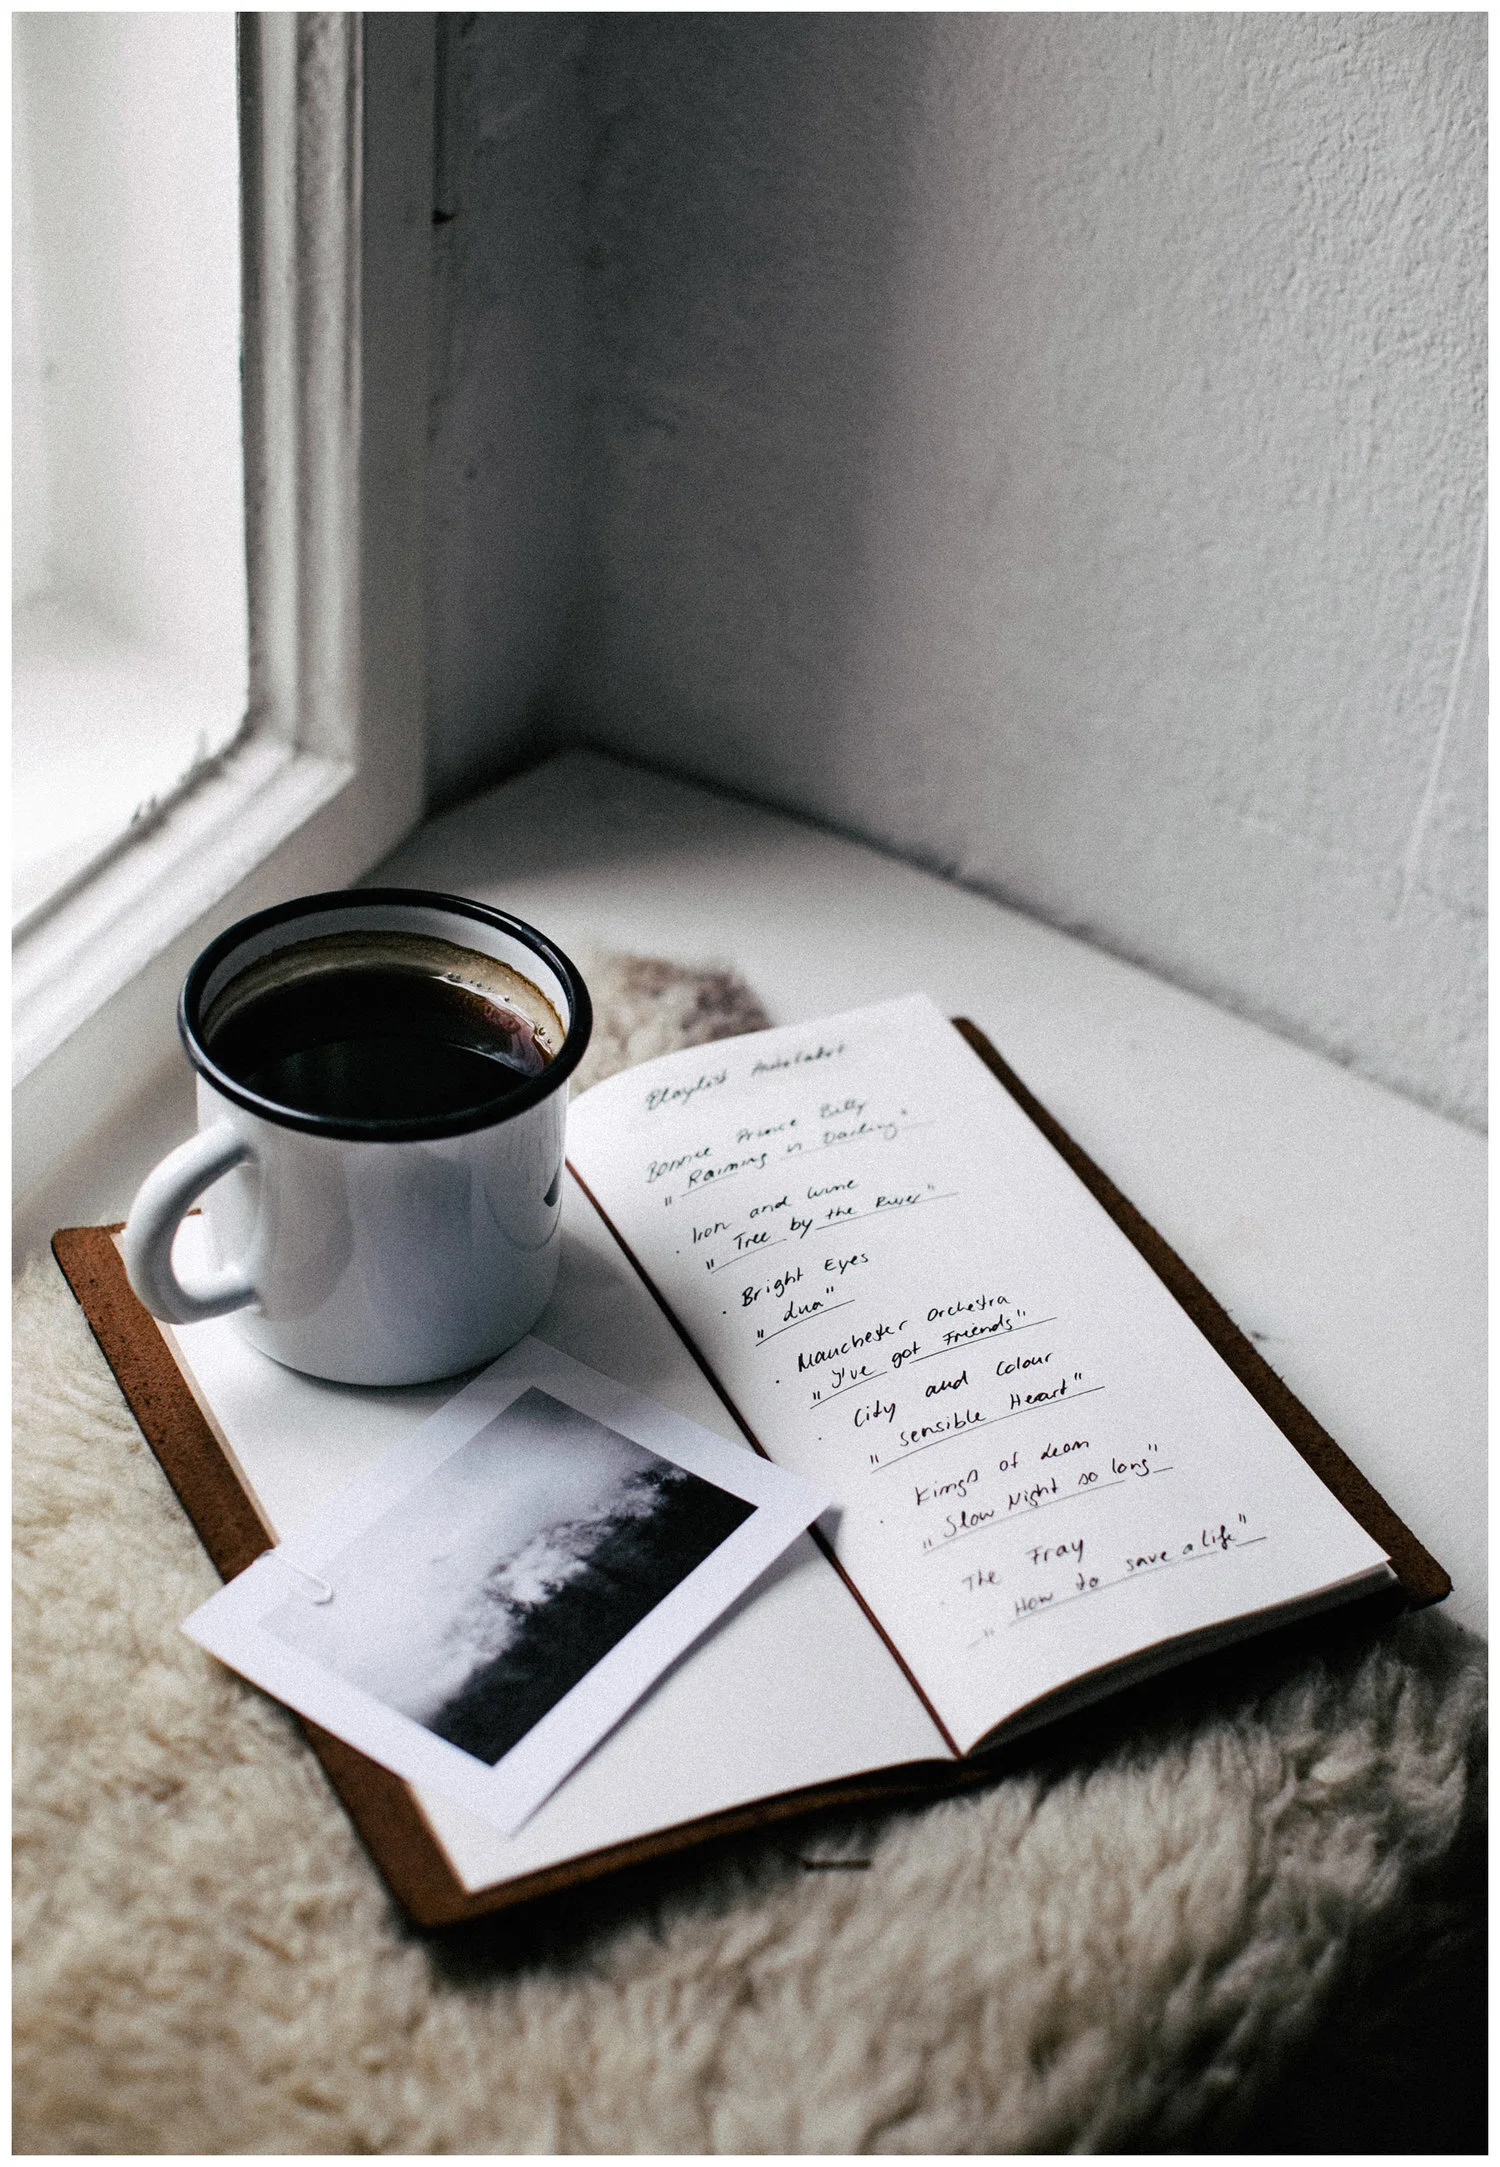 Playlist Autofahrt
Bonnie Prince Billy
" Raining in Darling"
· Iron and Wine
" Tree by the River"
· Bright Eyes
" Lua"
· Manchester Orchestra
" I've got Friends"
· City and Colour
" Sensible Heart"
· Kings of Leon
" Slow Night so long"
· The Fray
" How to save a life"